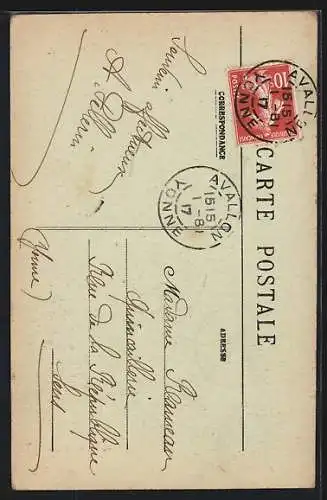 CARTE POSTALE
CORRESPONDANCE
ADRESSE
Souvenir affectueux
A. Pellerin
10
POSTES
AVALLON
15 15
1-8
17
YONNE
AVALLON
15 15
1-8
17
YONNE
Madame Rousseau
Quincaillerie
Rue de la République
Sens
(Yonne)